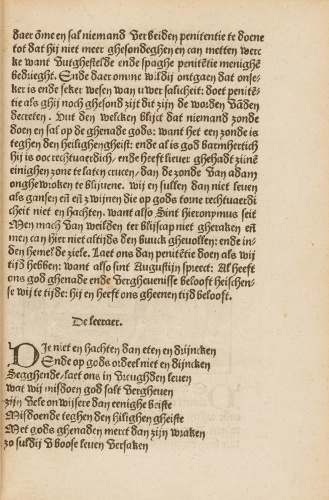 daer ōme en sal niemand verbeiden penitentie te doene
tot dat hij niet meer ghesondeghen en can metten werc
ke want vutghestelde ende spaghe penitētie menighē
bedrieght. Ende daer omme wildij ontgaen dat onse-
ker is ende seker wesen van uwer salicheit: doet penitē-
tie als ghij noch ghesond zijt dit zijn de worden vādēn
decreten. Vut den welcken blijct dat niemand zonde
doen en sal op de ghenade gods: want het een zonde is
teghen den heilighen gheist: ende al is god barmhertich
hij is ooc rechtuerdich/ ende heeft liever ghehadt zijnē
eenighen zone te laten crucen/ dan de zonde van adam
onghewroken te blijvene. wij en sullen dan niet leven
als gansen eñ eñ zwijnen die op gods torne rechtuerdi
cheit niet en hachten. want also Sint hieronymus seit
Men mach van weilden ter blijscap niet gheraken eñ
men can hier niet altijds den buuck ghevollen: ende in-
den hemel de ziele. Laet ons dan penitētie doen als wij
tijd hebben: want also sint Augustijn spreect: Al heeft
ons god ghenade ende verghevenisse belooft heischen-
se wij te tijde: hij en heeft ons gheenen tijd belooft.
De leeraer.
Die niet en hachten dan eten en drijncken
Ende op gods ordeel niet en dijncken
Segghende/ laet ons in vreughden leven
wat wij misdoen god salt vergheven
zijn vele onwijsere dan eenighe beiste
Misdoende teghen den hilighen gheiste
Met gods ghenaden merct dan zijn wraken
zo suldij v boose leven versaken